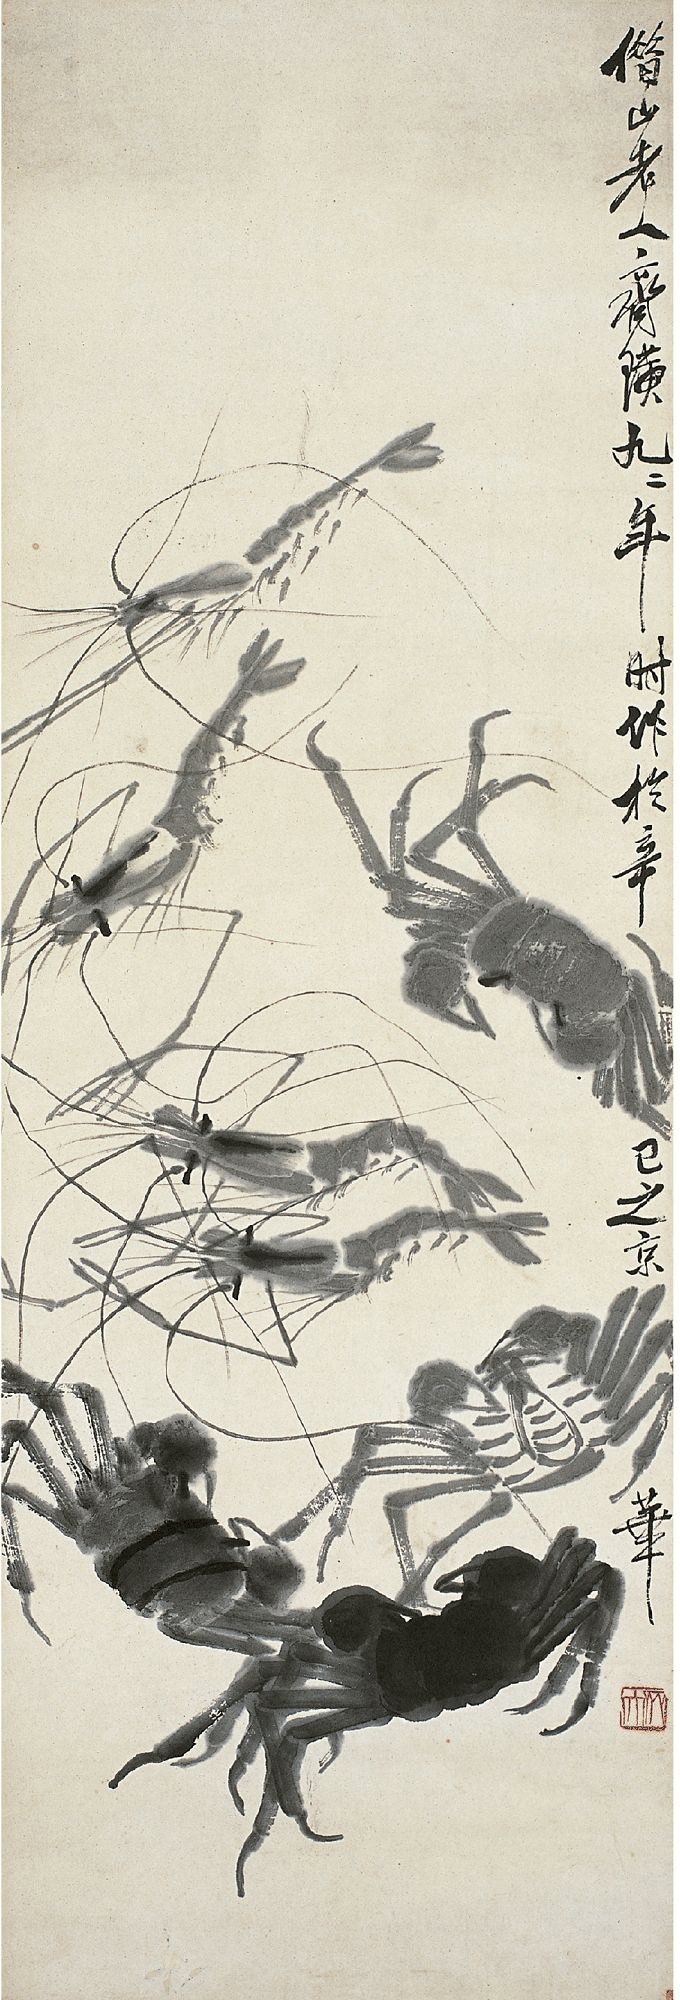 借山老人齊璜九二年時作於辛巳之京華